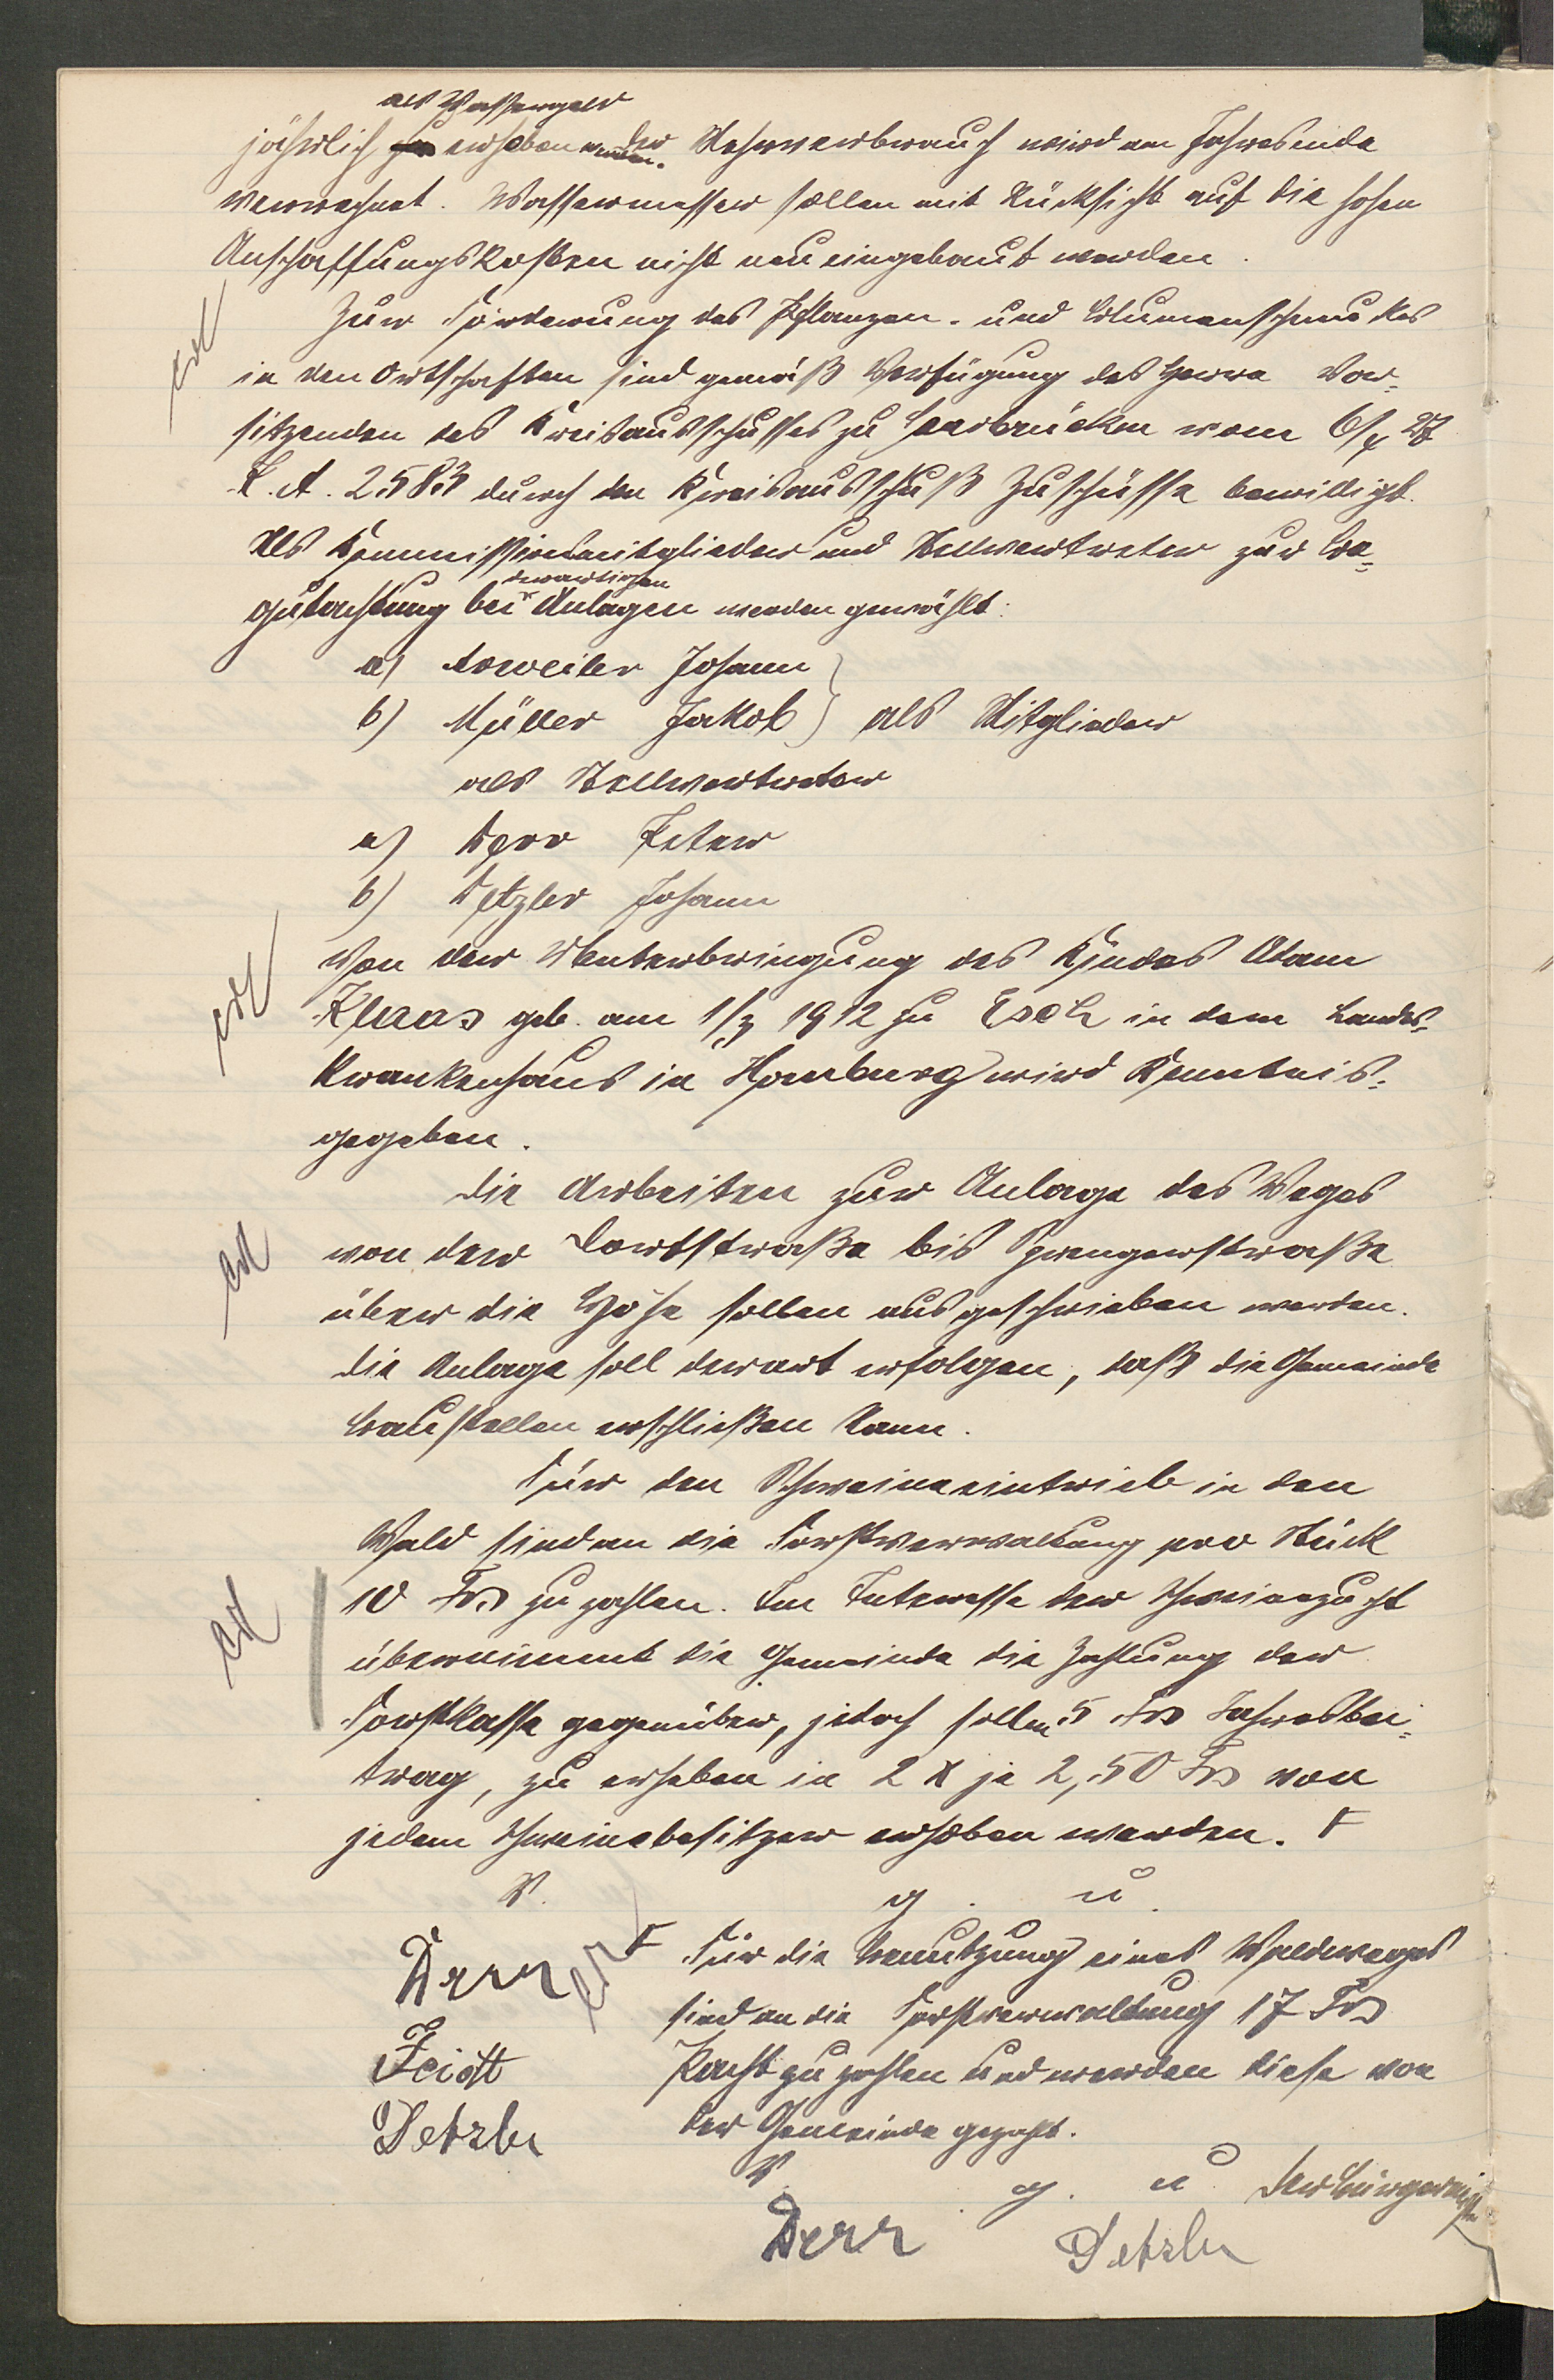 als Wassergeld
jährlich zu erheben werden. Der Mehrverbrauch wird am Jahresende
verrechnet. Wassermesser sollen mit Rücksicht auf die hohen
Anschaffungskosten nicht neu eingebaut werden.
Zur Förderung des Pflanzen- und Blumenschmuckes
in den Ortschaften sind gemäß Verfügung des Herrn Vor-
sitzenden des Kreisausschusses zu Saarbrücken vom 6/4 27
K.A. 2583 durch den Kreisausschuß Zuschüsse bewilligt.
Als Kommissionsmitglieder und Stellvertreter zur Be-
derartigen
gutachtung bei Anlagen werden gewählt:
a) Arweiler Johann
b) Müller Jakob } als Mitglieder
als Stellvertreter
a) Derr Peter
b) Detzler Johann
Von der Unterbringung des Kindes Adam
Klaas geb. am 1/3 1912 zu Esch in dem Landes-
krankenhaus in Homburg wird Kenntnis-
gegeben.
Die Arbeiten zur Anlage des Weges
von der Dorfstraße bis Sprengerstraße
über die Höhe sollen ausgeschrieben werden.
Die Anlage soll derart erfolgen, daß die Gemeinde
Baustellen erschließen kann.
Für den Schweineeintrieb in den
Wald sind an die Forstverwaltung pro Stück
10 Frs zu zahlen. Im Interesse der Schweinezucht
übernimmt die Gemeinde die Zahlung der
Forstkasse gegenüber, jedoch sollen 5 Frs Jahresbei-
trag, zu erheben in 2 x je 2,50 Frs von
jedem Schweinebesitzer erhoben werden. F
V. g. u.
Derr
F Für die Benutzung eines Waldweges
sind an die Forstverwaltung 17 Frs
Feidt
Pacht zu zahlen und werden diese von
Detzler
der Gemeinde gezahlt.
V. g. u. Der Bürgermeister
Derr Detzler